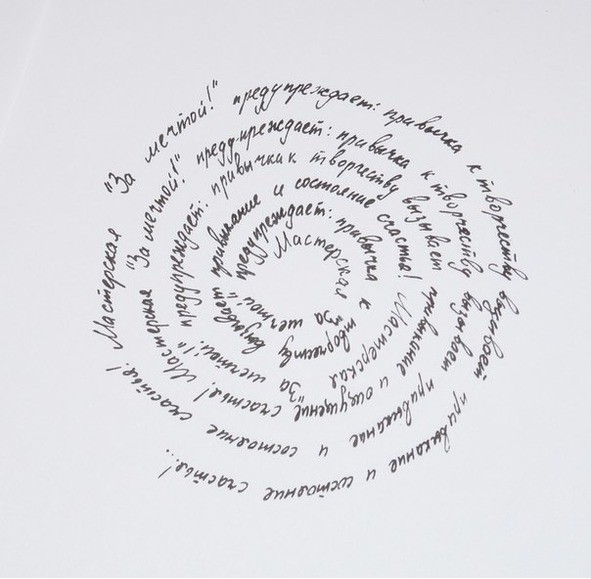 Мастерская "За мечтой!" предупреждает: привычка к творчеству вызывает привыкание и состояние счастья!
Мастерская "За мечтой!" предупреждает: привычка к творчеству вызывает привыкание и ощущение счастья!
Мастерская "За мечтой!" предупреждает: привычка к творчеству вызывает привыкание и состояние счастья!
Мастерская "За мечтой!" предупреждает: привычка к творчеству вызывает привыкание и состояние счастья!...